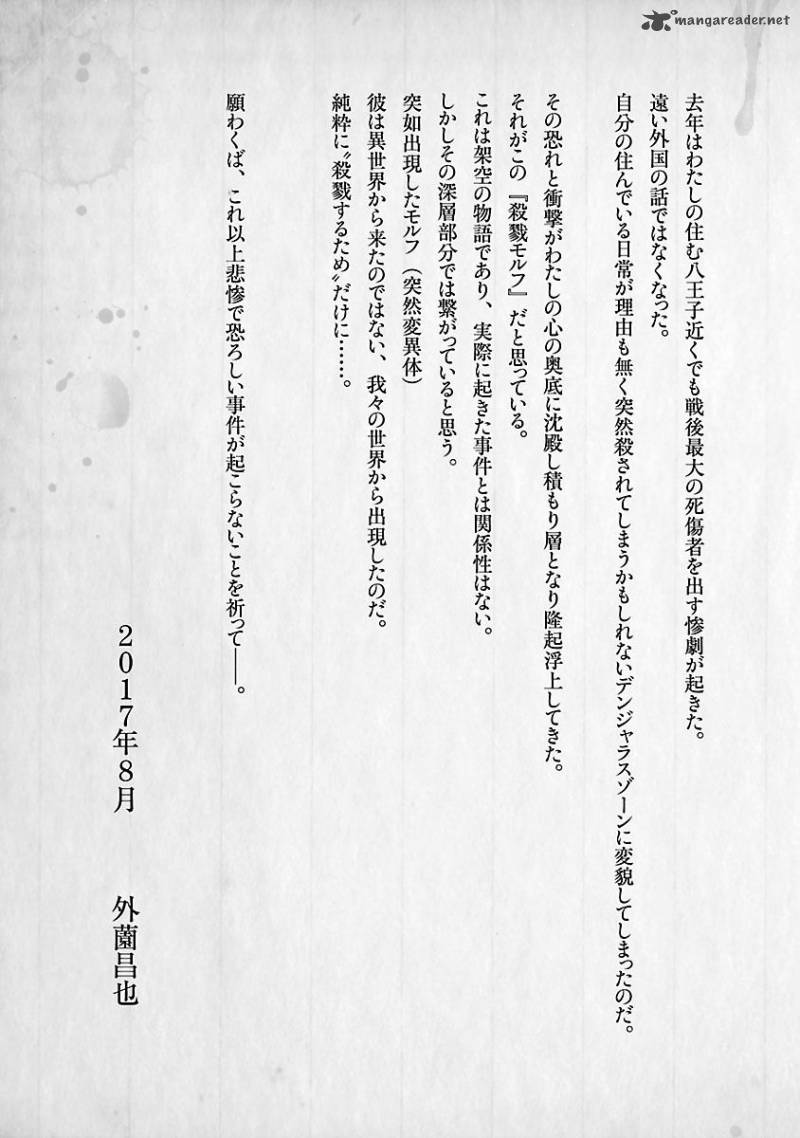 mangareader.net
去年はわたしの住む八王子近くでも戦後最大の死傷者を出す惨劇が起きた。
遠い外国の話ではなくなった。
自分の住んでいる日常が理由も無く突然殺されてしまうかもしれないデンジャラスゾーンに変貌してしまったのだ。
その恐れと衝撃がわたしの心の奥底に沈殿し積もり層となり隆起浮上してきた。
それがこの『殺戮モルフ』だと思っている。
これは架空の物語であり、実際に起きた事件とは関係性はない。
しかしその深層部分では繋がっていると思う。
突如出現したモルフ（突然変異体）
彼は異世界から来たのではない、我々の世界から出現したのだ。
純粋に〝殺戮するため〟だけに……。
願わくば、これ以上悲惨で恐ろしい事件が起こらないことを祈って――。
2017年8月　外薗昌也